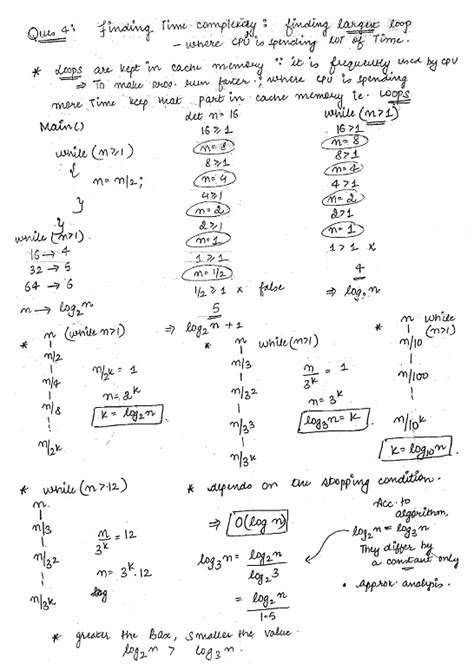 Ques 4: Finding Time complexity: finding largest loop
- where CPU is spending lot of Time.
* Loops are kept in cache memory ∵ it is frequently used by CPU
⇒ To make prog. run faster, where CPU is spending
more time keep that part in cache memory ie. Loops
Main()
while (n≥1)
{
n = n/2;
}
}
let n = 16
16 ≥ 1
n = 8
8 ≥ 1
n = 4
4 ≥ 1
n = 2
2 ≥ 1
n = 1
1 ≥ 1
n = 1/2
1/2 ≥ 1 × false
5
⇒ log₂n + 1
while (n>1)
16 > 1
n = 8
8 > 1
n = 4
4 > 1
n = 2
2 > 1
n = 1
1 > 1 ×
4
⇒ log₂n
while (n>1)
16 → 4
32 → 5
64 → 6
n → log₂n
* n (while n>1)
n/2
n/4
n/8
n/2k
n/2ᵏ = 1
n = 2ᵏ
k = log₂n
* n while (n>1)
n/3
n/3²
n/3³
n/3ᵏ
n/3ᵏ = 1
n = 3ᵏ
log₃n = k
* n while (n>1)
n/10
n/100
n/10ᵏ
k = log₁₀n
* while (n>12)
n
n/3
n/3²
n/3ᵏ
n/3ᵏ = 12
n = 3ᵏ.12
log
* depends on the stopping condition.
⇒ O(log n)
log₃n = log₂n / log₂3
= log₂n / 1.5
Acc. to
algorithm,
log₂n = log₃n
They differ by
a constant only
• Approx analysis.
* greater the Base, smaller the value
log₂n > log₃n.